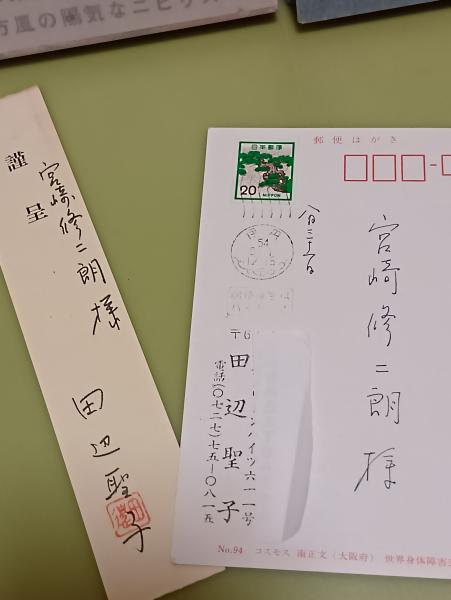 方風の陽気なニヒリス
謹呈
宮崎修二朗様
田辺聖子
郵便はがき
日本郵便
20
NIPPON
伊丹
54
宮崎修二朗様
〒6
ハイツ六一一号
田辺聖子
電話(〇七二七)七五―〇八一五
No.94 コスモス 南正文(大阪府) 世界身体障害